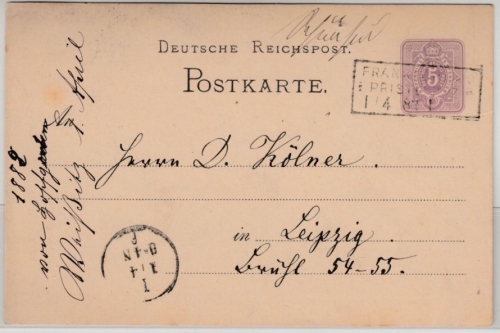 DEUTSCHE REICHSPOST.
POSTKARTE.
5
FRAN
1 4 82
Herrn D. Kölner.
in Leipzig.
Brühl 54-55.
1882
von Hopfgarten
Weißitz 1. April
1
1 4
6-4N